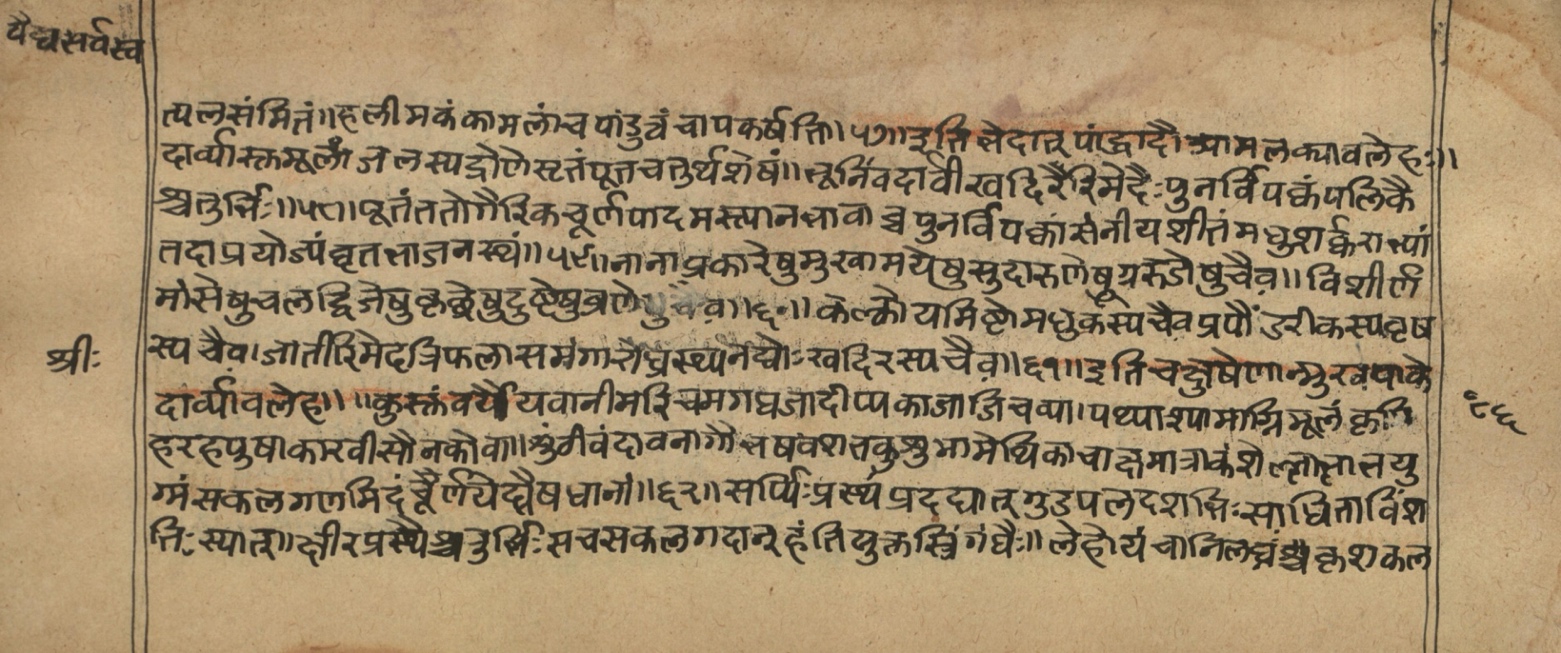 वैद्यसर्वस्व
त्पलसंमितं॥हलीमकं कामलांच पांडुत्वं चापकर्षति॥५७॥इति भेदात् पांड्वादौ आमलक्यावलेहः॥
दार्व्यास्तमूलां जलस्यद्रोणेसृतंपूतचतुर्थशेषं॥ दार्वीखदिरैरिमेदैःपुनर्विपक्वंपलिकै
श्चतुर्भिः॥५८॥पूतंततोगैरिकचूर्णपादमस्त्यानभावाच्च पुनर्विपक्वां सेनीयशीतंमधुशर्कराभ्यां
तदाप्रयोज्यंघृतभाजनस्थं॥५९॥नानाप्रकारेषुमुखामयेषुसुदारुणेषूग्ररुजेषुचैव॥ विशीर्ण
मांसेषुचलद्विजेषुकृछ्रेषुदुष्टेषुव्रणेषुचैव॥६०॥ कल्को यमिष्टोमधुकस्यचैवप्रपौंडरीकस्यवृष
स्यचैव।जातीरिमेदत्रिफलासमंगा खदिरस्यचैव॥६१॥इतिचक्षुषेणान्मुखपाके
श्रीः
दार्व्यावलेह॥ ॥कुस्तंवर्यै यवानीमरिचमगधजादीप्यकाजाजिचव्या।पथ्याश्यामाग्निमूलं कृमि
९६
हरहपुषाकारवीसौनकोवा॥शुंठीवंदावनागौ मेथिकाचाक्षमात्राकं यु
ग्मंसकलगणमिदं चूर्णयेद्वैषधानां॥६२॥सर्प्पिःप्रस्थंप्रदद्यात् गुडपलदशभिःसाधिताविंश
तिः स्यात्॥क्षीरप्रस्थैश्चतुर्भिःसचसकलगदान्हंतियुक्तस्त्रिगंधैः॥ लेहोयंचानिलघ्नंश्चकृशकल